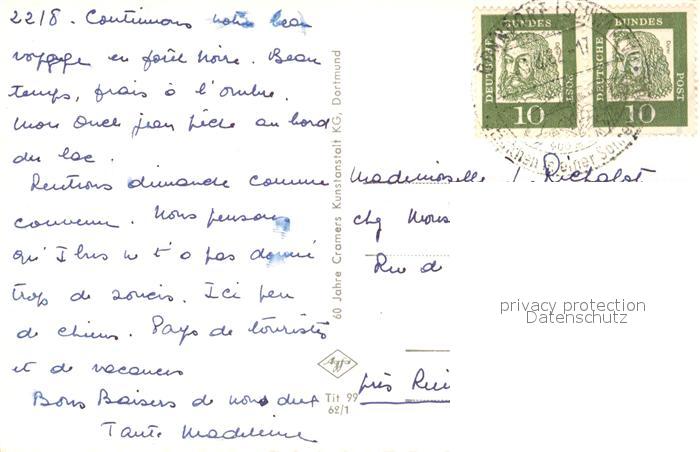 22/8. Continuons notre beau
voyage en forêt noire. Beau
temps, frais à l'ombre.
Mon Oncle Jean pêche au bord
du lac.
Rentrons dimanche comme
convenu. Nous pensons
qu'Ibus ne t'a pas donné
trop de soucis. Ici peu
de chiens. Pays de touristes
et de vacances
Bons Baisers de nous deux
Tante Madeleine
60 Jahre Cramers Kunstanstalt KG, Dortmund
Tit 99
62/1
DEUTSCHE BUNDES POST
10
DEUTSCHE BUNDES POST
10
Dürer
Mademoiselle J. Richalot
chez Mons
Rue d
près
privacy protection
Datenschutz